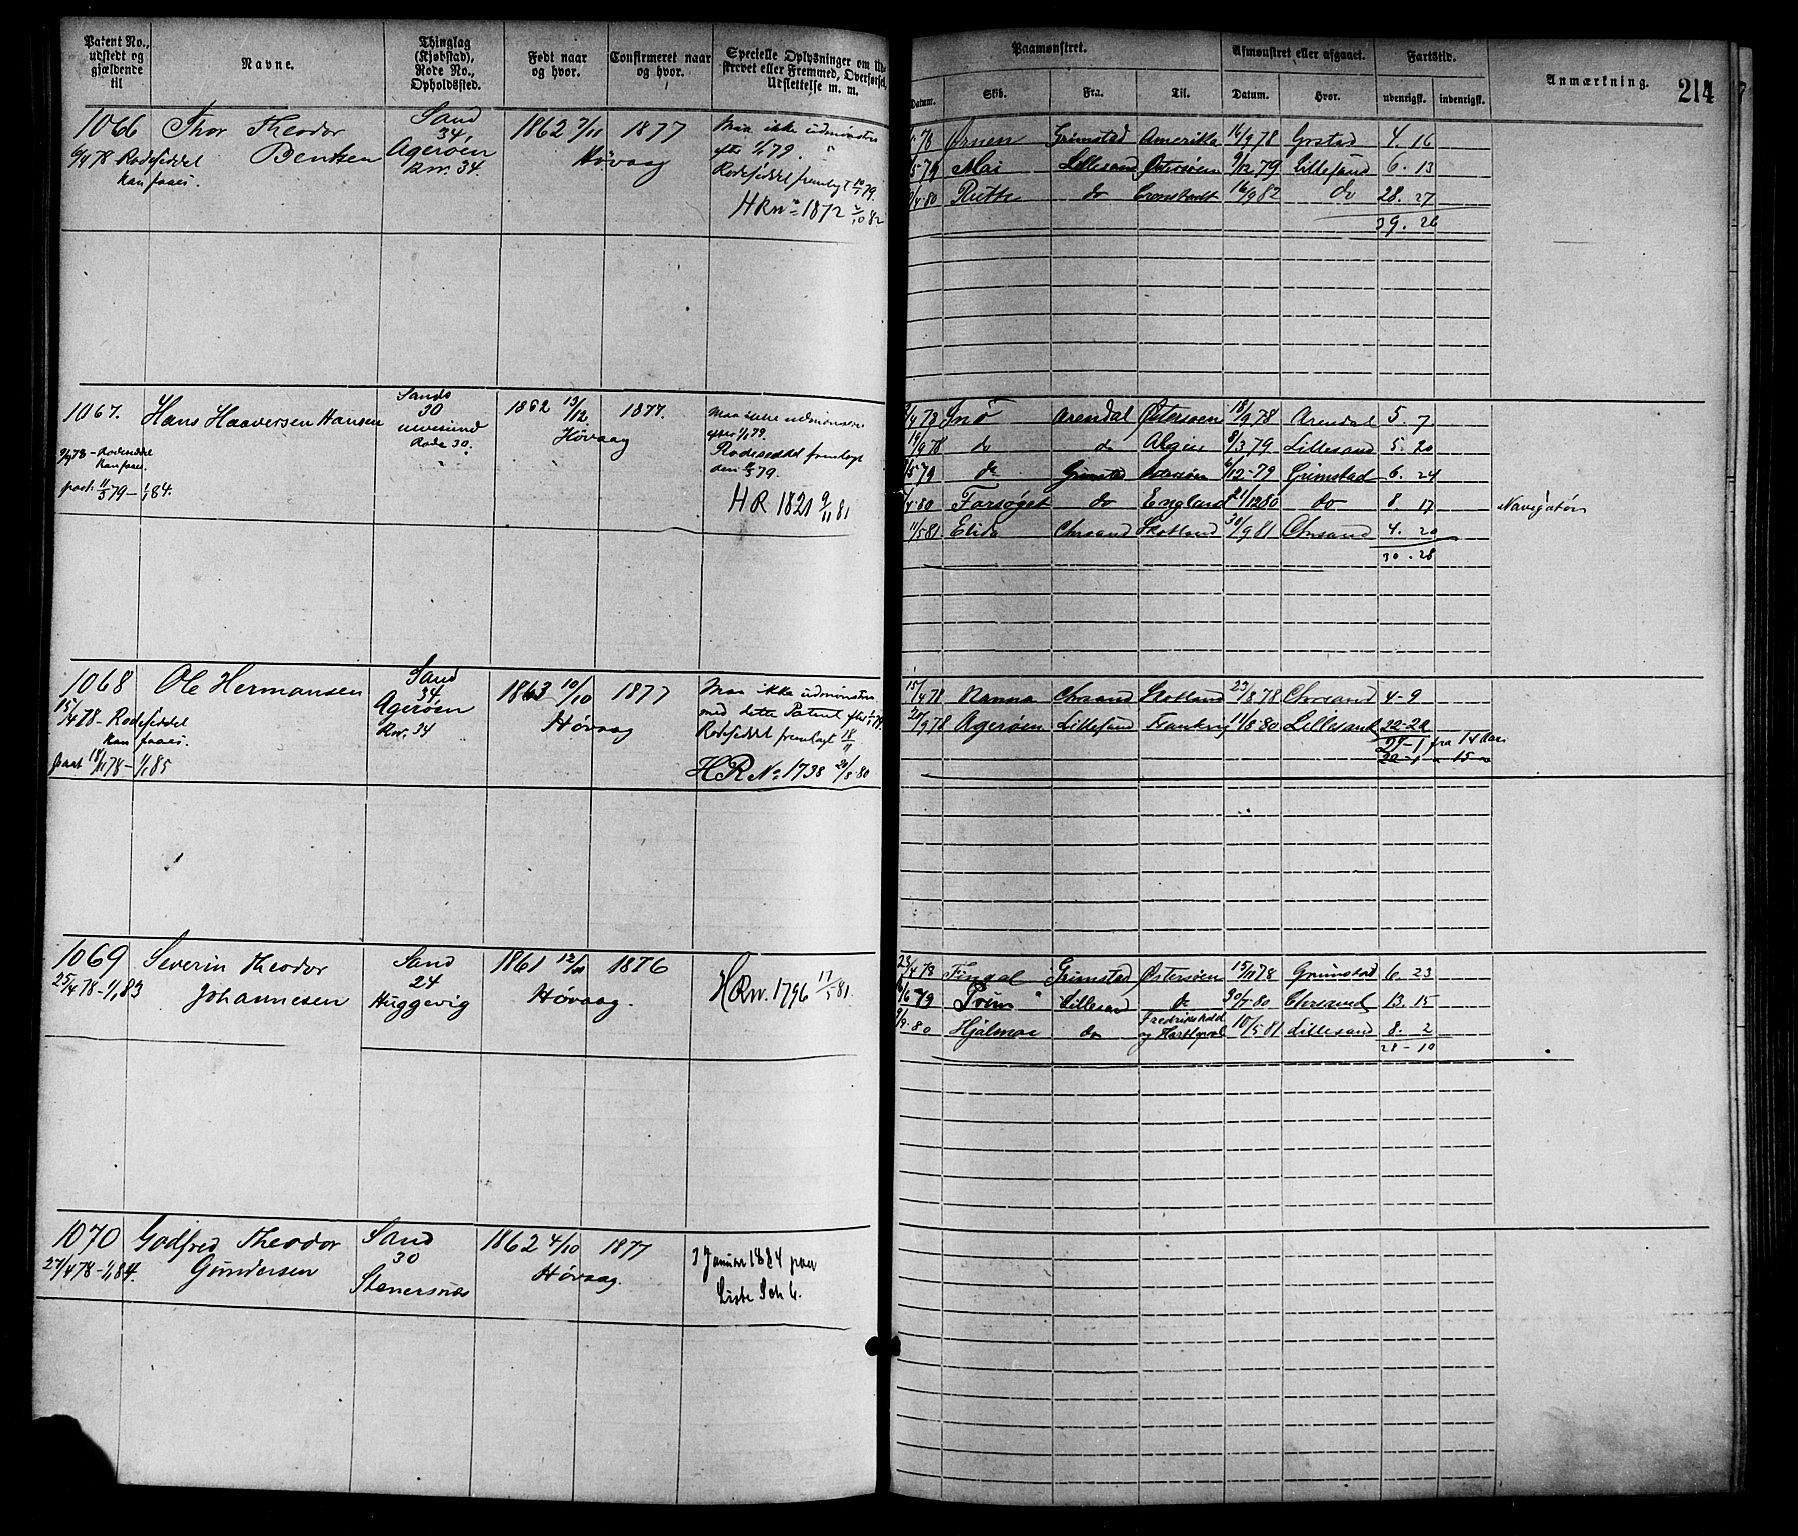 Patent No., udstedt og gjældende til
Navne.
Thinglag (Kjøbstad), Rode No., Opholdssted.
Født naar og hvor.
Confirmeret naar og hvor.
Specielle Oplysninger om Udskrevet eller Fremmed, Overførsel, Udslettelse m. m.
Paamønstret.
Datum. Skib. Fra. Til.
Afmønstret eller afgaaet.
Datum. Hvor.
Fartstid.
udenrigsk. indenrigsk.
Anmærkning.
214
1066 Thor Theodor Bentsen
6/4 78 Rodeseddel kan faaes.
Sand 34 Agerøen Rnr. 34
1862 7/11 1877 Høvaag
Maa ikke udmønstres efter 1/1 79.
Rodeseddel fremlagt 79.
HR No 1872 2/10 82
78 Ørnen Grimstad Amerika 14/9 78 Grstad 4. 16
79 Mai Lillesand Østersøen 9/12 79 Lillesand 6. 13
/4 80 Ruth do Cronstadt 16/9 82 do 28. 27
39. 26
1067. Hans Haaversen Hansen
9/4 78 - Rodeseddel kan faaes.
paat. 11/5 79 - 1/1 84.
Sands 30 Ulvesund Rode 30.
1862 13/12. 1877. Høvaag
Maa ikke udmønstres efter 1/1 79.
Rodeseddel fremlagt den 79.
HR 1821 9/11 81
/4 78 Snö Arendal Østersøen 18/9 78 Arendal 5. 7
14/9 78 do do Algier 8/3 79 Lillesand 5. 20
/5 79 do Grimstad Østersøen 6/12 - 79 Grimstad 6. 24
/4 80 Forsøget do England 21/12 80 do 8. 17 Navigatør
11/5 81 Elida Chrsand Skotland 30/9 81 Chrsand 4. 20
30. 28
1068 Ole Hermansen
15/4 78 - Rodeseddel kan faaes.
paat 18/11 78 - 1/1 85
Sand 34 Agerøen Rnr. 34
1863 10/10 1877 Høvaag
Maa ikke udmønstres med dette Patent efter 1/1 79.
Rodeseddel fremlagt 18/11
HR No 1738 20/8 80
15/4 78 Nanna Chrsand Skotland 27/8 78 Chrsand 4 - 9
20/9 78 Agerøen Lillesand Frankrig 11/8 - 80 Lillesand 22 - 22
27 - 1 fra 14 Aar
20 - 1 " 15 "
1069 Severin Theodor Johannesen
25/4 78 - 1/1 83
Sand 24 Huggevig
1861 12/11 1876 Høvaag.
HRnr. 1796 17/5 81.
23/4 78 Fingal Grimstad Østersøen 15/11 78 Grimstad 6. 23
/6 79 Prim Lillesand do 30/7 80 Chrsand 13. 15
/9 80 Hjalmar do Fredrikshald og Hartlepool 10/5 81 Lillesand 8. 2
28 - 10
1070 Godfred Theodor Gundersen
27/4 78 - 1/1 84.
Sand 30 Stenersnæs
1862 4/10 1877 Høvaag.
3 Januar 1884 paa Liste Sch 6.